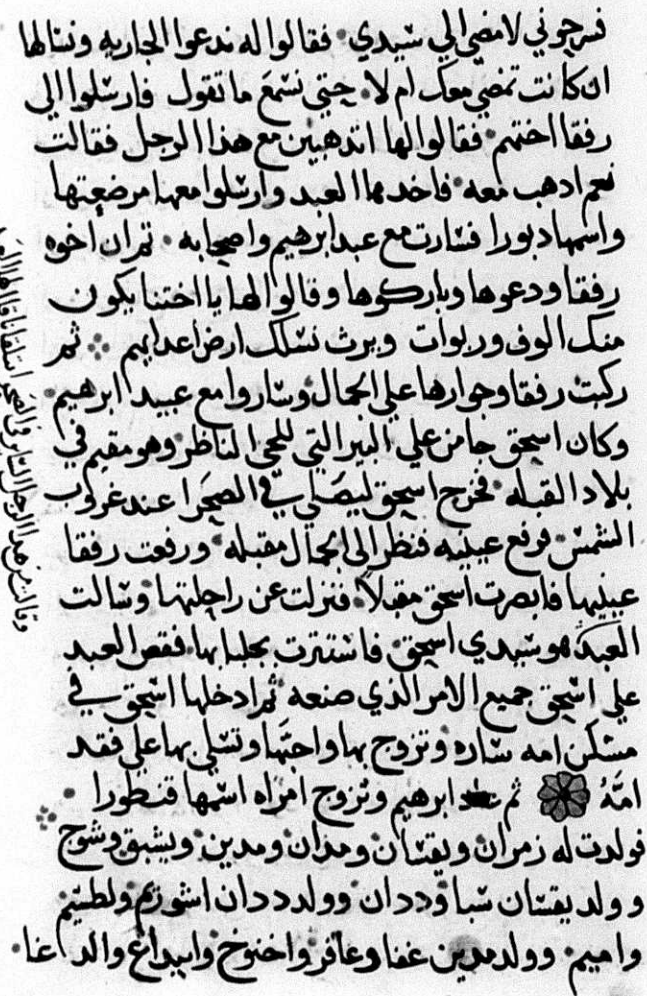 فسرحوني لامضي الي سيدي فقالوا له ندعوا الجاريه ونسالها
ان كانت تمضي معك ام لا حتي نسمع ما تقول فارسلوا الي
رفقا اختهم فقالوا لها اتذهبين مع هذا الرجل فقالت
نعم اذهب معه فاخذها العبد وارسلوا معها مرضعتها
واسمها دبورا فسارت مع عبد ابرهيم واصحابه ثم ان اخوه
رفقا ودعوها وباركوها وقالوا لها يا اختنا يكون
منك الوف وربوات ويرث نسلك ارض اعدايهم ثم
ركبت رفقا وجوارها علي الجمال وساروا مع عبيد ابرهيم
وكان اسحق جا من علي البير التي للحي الناظر وهو مقيم في
بلاد القبله فخرج اسحق ليصلي في الصحرا عند غروب
الشمس فرفع عينيه فنظر الى الجمال مقبله ورفعت رفقا
عينيها فابصرت اسحق مقبلاً فنزلت عن راحلتها وسالت
العبد هو سيدي اسحق فاستترت بجلبابها فقص العبد
علي اسحق جميع الامر الذي صنعه ثم ادخلها اسحق في
مسكن امه ساره وتزوج بها واحبها وتسلي بها علي فقد
امهُ ثم ابرهيم وتزوج امراه اسمها قنطورا
فولدت له زمران ويقسان ومدان ومدين ويشبق وشوح
وولد يقسان سبا وددان وولد ددان اشوريم ولطسيم
واميم وولد مدين عفا وعافر واخنوخ وابيداع والداعا
وقالت من هذا الرجل الساير في الصحرا